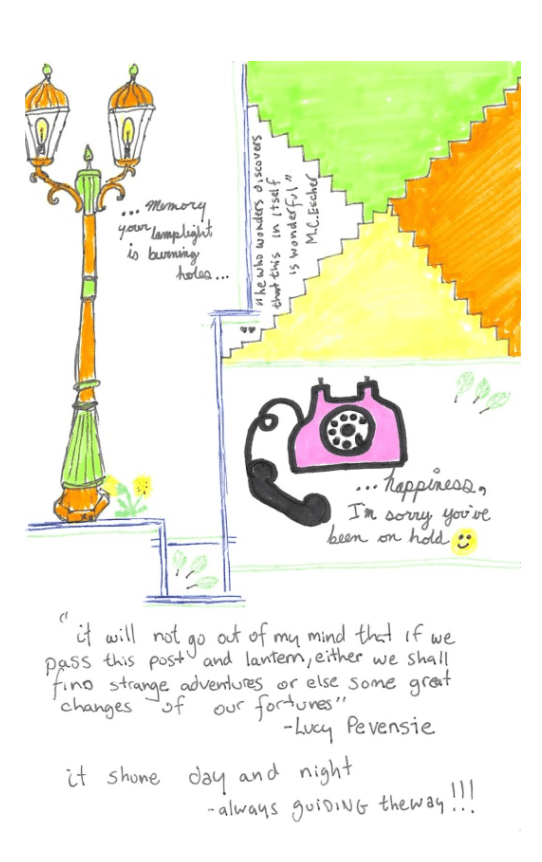 ... memory
your lamplight
is burning
holes...
"he who wonders discovers
that this in itself
is wonderful"
M.C. Escher
... happiness,
I'm sorry you've
been on hold
"it will not go out of my mind that if we
pass this post and lantern, either we shall
find strange adventures or else some great
changes of our fortunes"
-Lucy Pevensie
it shone day and night
-always guiding the way!!!